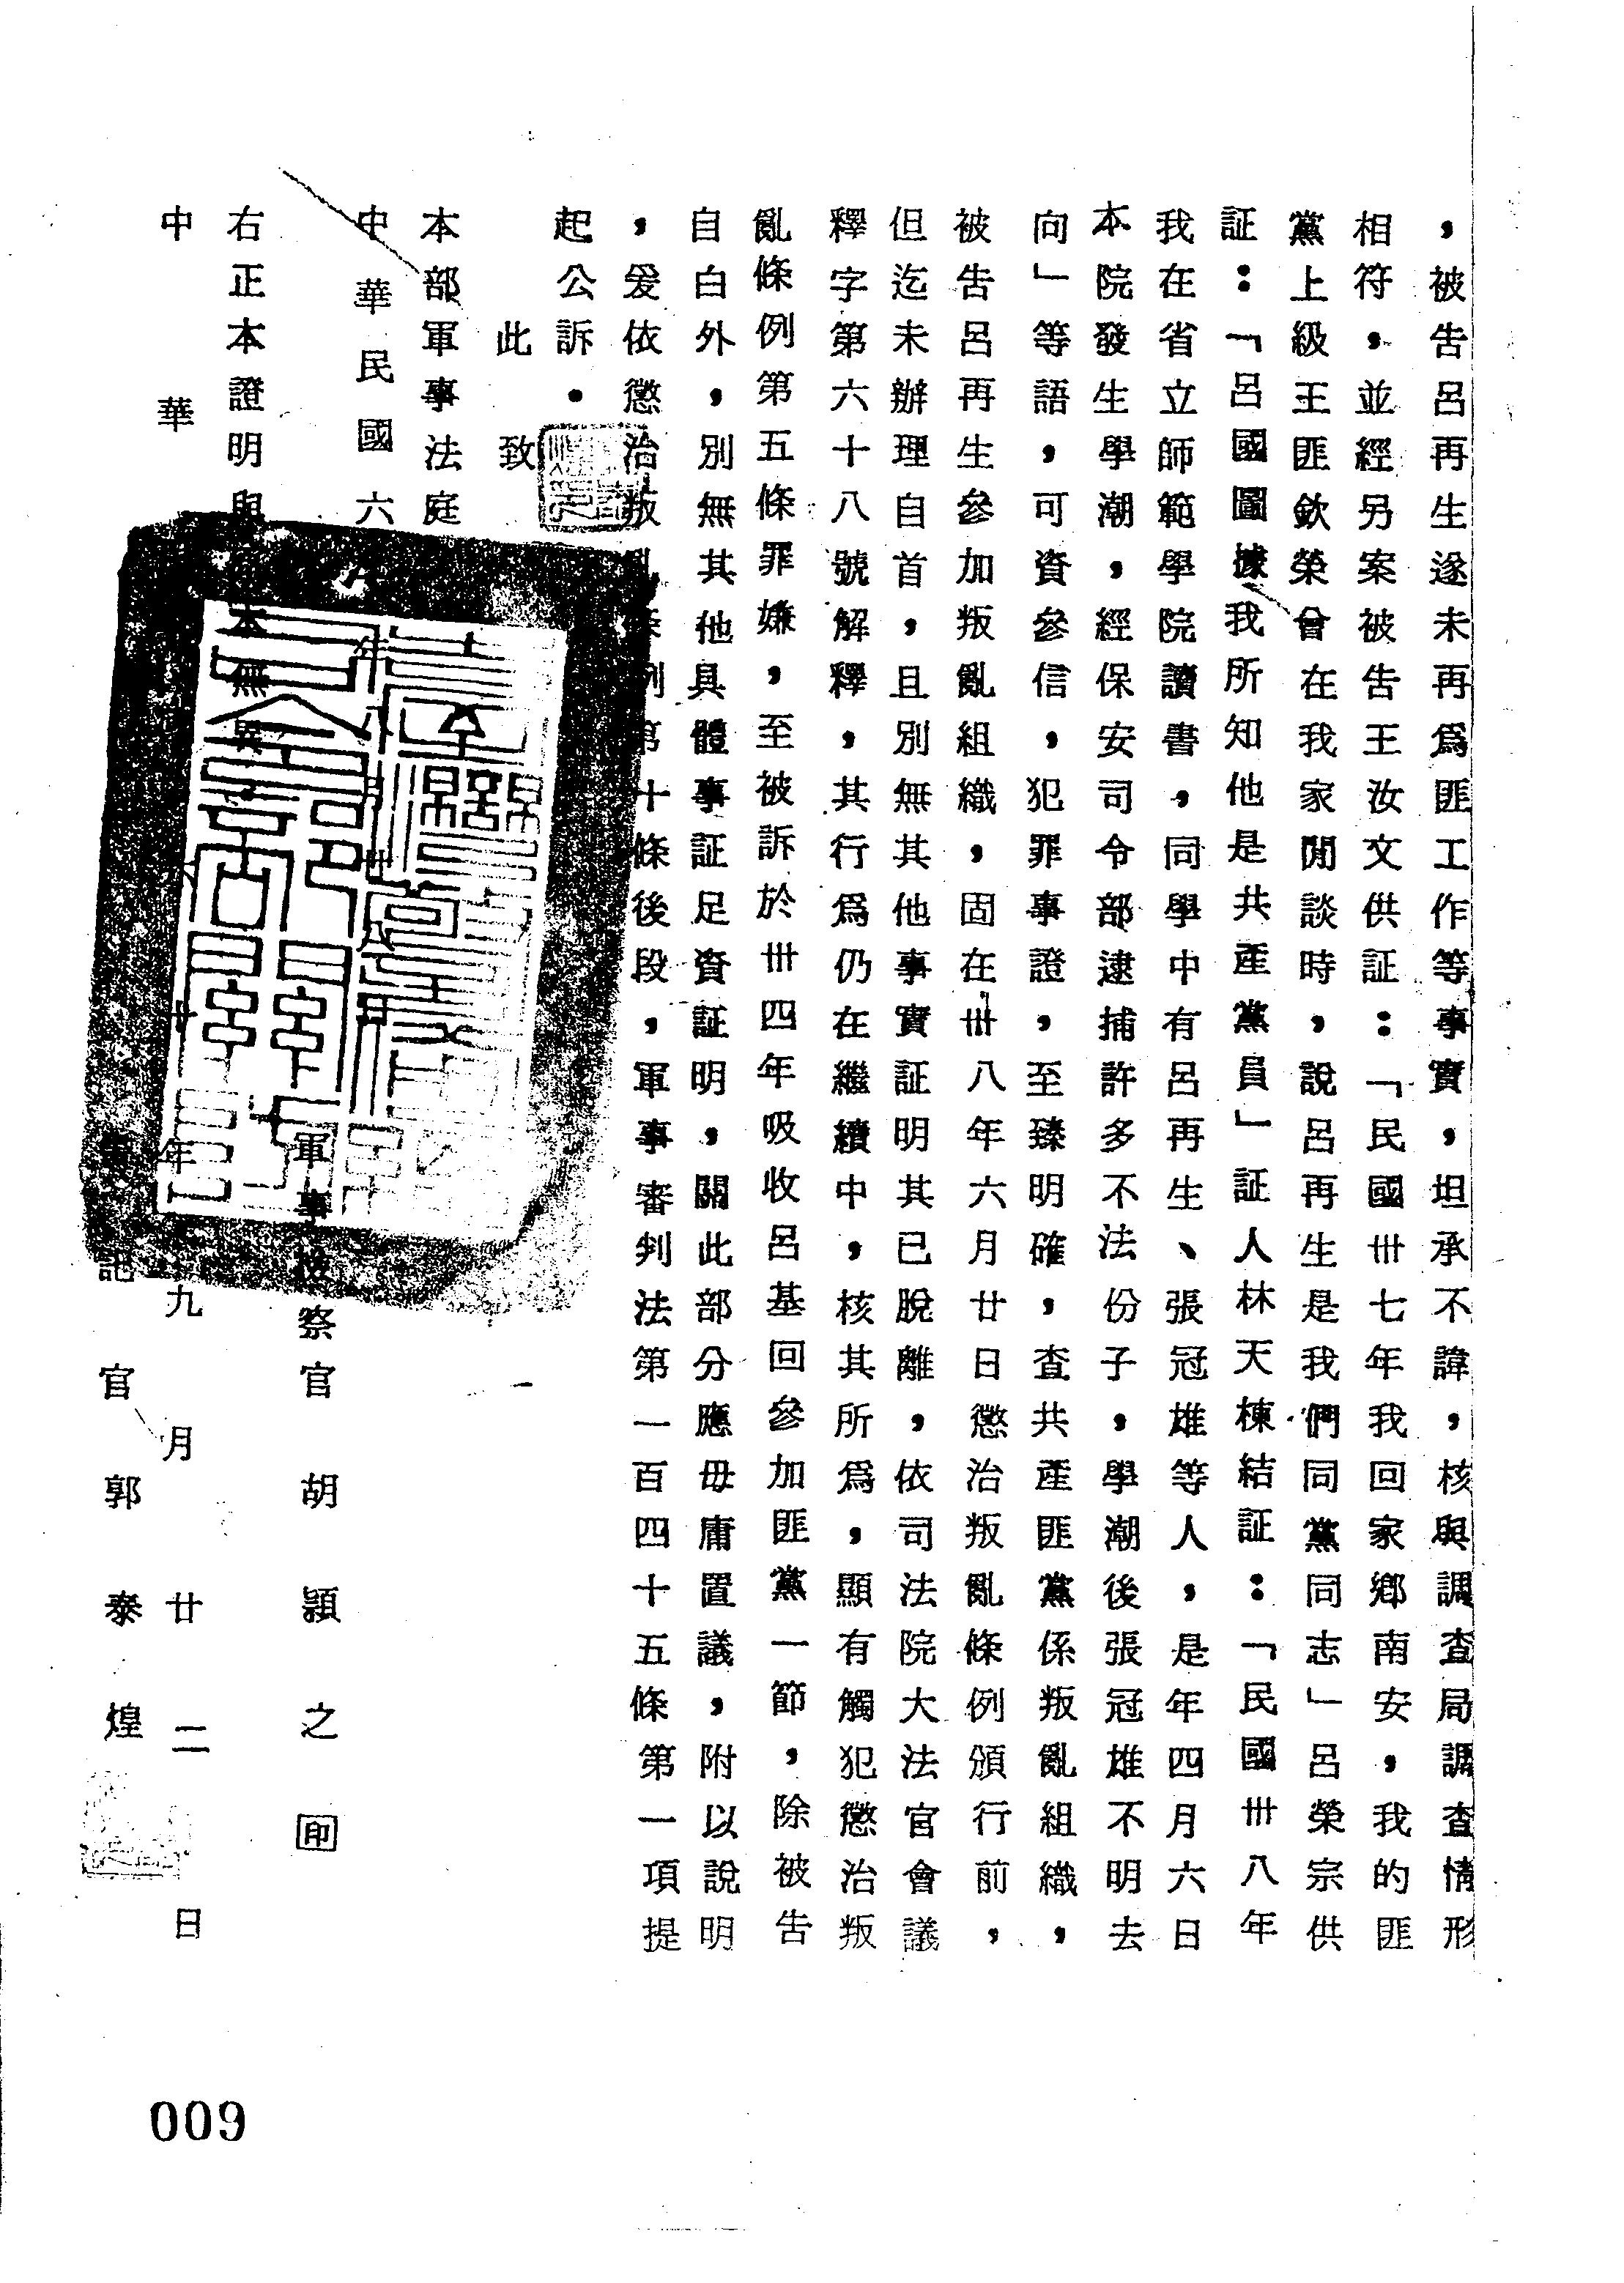 ，被告呂再生遂未再爲匪工作等事實，坦承不諱，核與調查局調查情形
相符，並經另案被告王汝文供証：「民國卅七年我回家鄉南安，我的匪
黨上級王匪欽榮曾在我家閒談時，說呂再生是我們同黨同志」呂榮宗供
証：「呂國圖據我所知他是共產黨員」証人林天棟結証：「民國卅八年
我在省立師範學院讀書，同學中有呂再生、張冠雄等人，是年四月六日
本院發生學潮，經保安司令部逮捕許多不法份子，學潮後張冠雄不明去
向」等語，可資參信，犯罪事證，至臻明確，查共產匪黨係叛亂組織，
被告呂再生參加叛亂組織，固在卅八年六月廿日懲治叛亂條例頒行前，
但迄未辦理自首，且別無其他事實証明其已脫離，依司法院大法官會議
釋字第六十八號解釋，其行爲仍在繼續中，核其所爲，顯有觸犯懲治叛
亂條例第五條罪嫌，至被訴於卅四年吸收呂基回參加匪黨一節，除被告
自白外，別無其他具體事証足資証明，關此部分應毋庸置議，附以說明
，爰依懲治叛亂條例第十條後段，軍事審判法第一百四十五條第一項提
起公訴．
此致
本部軍事法庭
中華民國六年八月廿八日
軍事檢察官 胡穎之 印
右正本證明與本無異
中華年九月廿二日
記官 郭泰煌
009